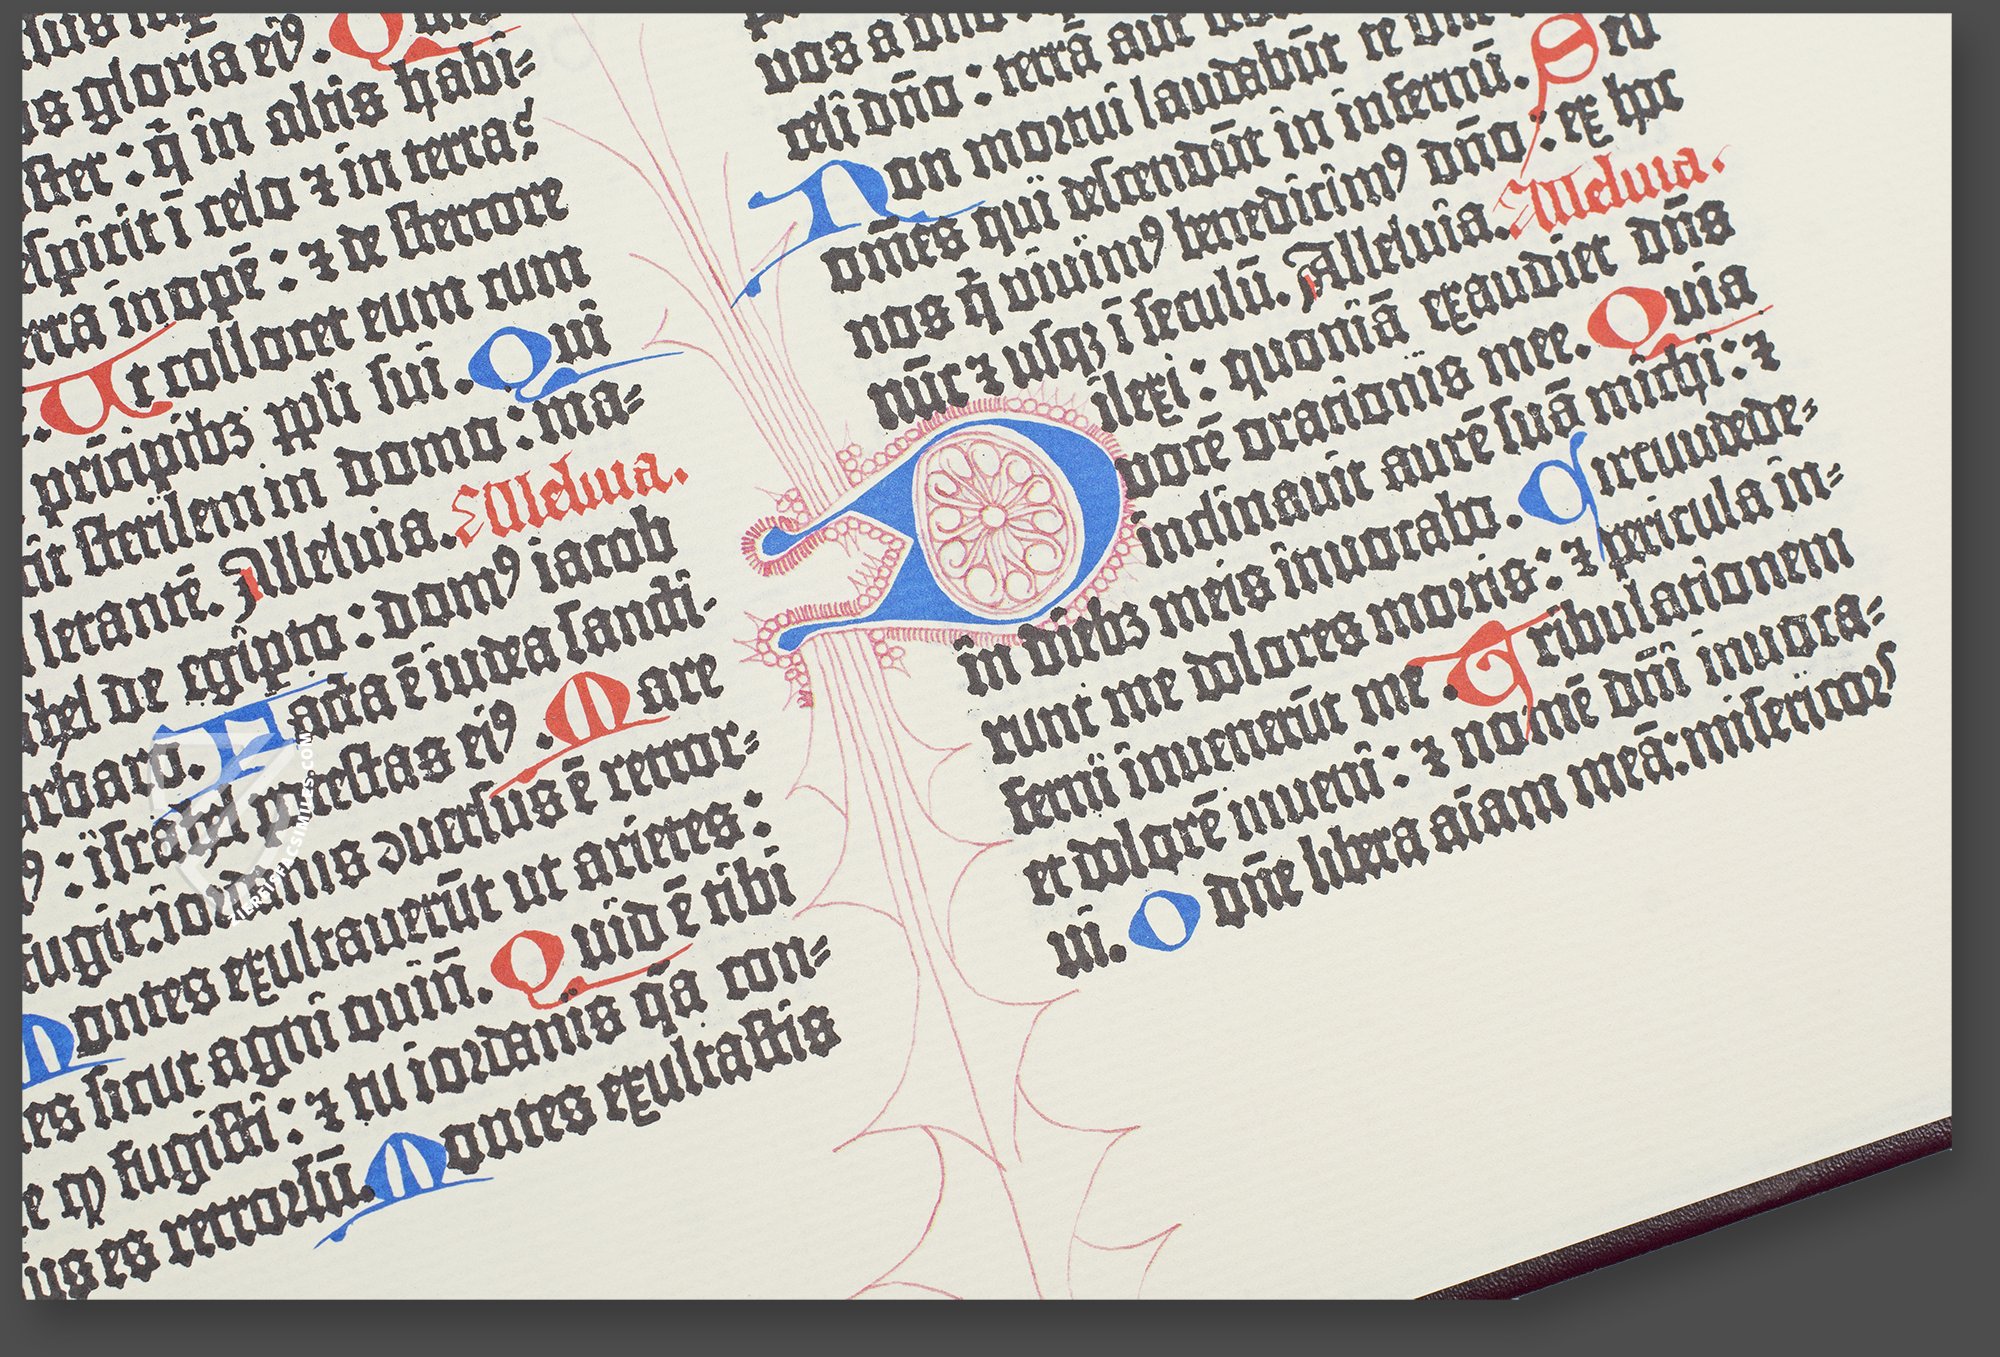 us gloria ei⁹. Quis
ster : q̄ in altis habi=
respicit ī celo ⁊ in terra?
terra inopē : ⁊ de stercore
Ut collocet eum cum
prīcipibꝫ ppli sui. Qui
sterilem in domo : ma=
letantē. Alleluia. Alleluia.
de egipto : dom⁹ iacob
barbaro. Facta ē iudea sancti-
⁹ : israhel potestas ei⁹. Mare
fugit: iordanus ɔuersus ē retror=
Montes exultauerūt ut arietes :
sicut agni ouiū. Quid ē tibi
fugisti : ⁊ tu iordanis q̄a con=
es retrorsū. Montes exultastis
celi dn̄o : terrā aut
Non mortui laudabūt te dn̄e
om̄es qui descendūt in infernū. Sed
nos q̄ uiuim⁹ benedicim⁹ dn̄o : ex hoc
nūc ⁊ usqꝫ ī seculū. Alleluia. Alleluia.
Dilexi : quoniā exaudiet dn̄s
uocē orationis mee. Quia
inclinauit aurē suā michi : ⁊
in diebꝫ meis inuocabo. Circumdede=
runt me dolores mortis : ⁊ pericula in=
ferni inuenerūt me. Tribulationem
et dolorē inueni : ⁊ nomē dn̄i inuoca=
ui. O dn̄e libera aīam meā: misericors
ZIEREISFACSIMILES.COM